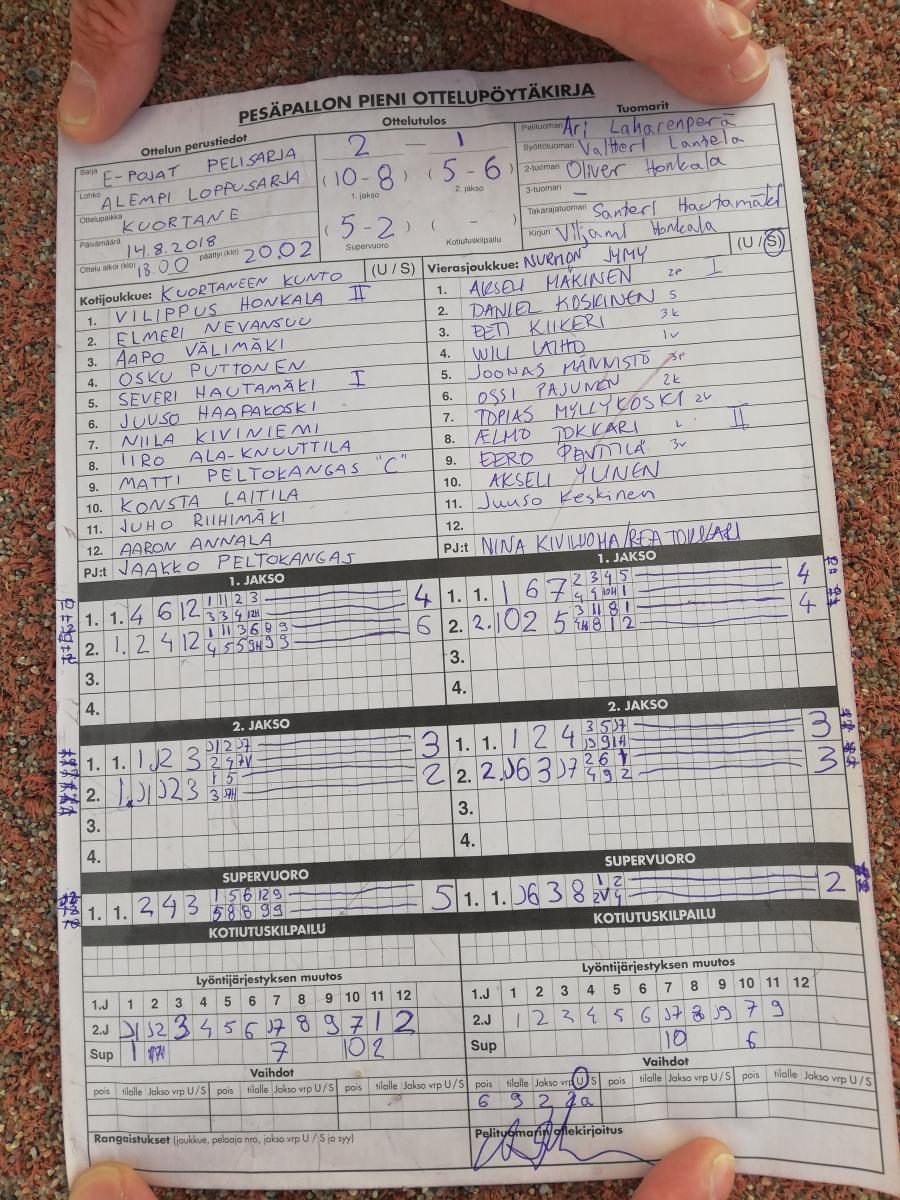 PESÄPALLON PIENI OTTELUPÖYTÄKIRJA
Ottelun perustiedot
Sarja E-POJAT PELISARJA
Lohko ALEMPI LOPPUSARJA
Ottelupaikka KUORTANE
Päivämäärä 14.8.2018
Ottelu alkoi (klo) 18.00 päättyi (klo) 20.02
Ottelutulos
2 – 1
(10-8) (5-6)
1. jakso 2. jakso
(5-2) ( - )
Supervuoro Kotiutuskilpailu
Tuomarit
Pelituomari Ari Laharenperä
Syöttötuomari Valtteri Lantela
2-tuomari Oliver Honkala
3-tuomari –
Takarajatuomari Santeri Hautamäki
Kirjuri Viljami Honkala
Kotijoukkue: KUORTANEEN KUNTO (U / S)
1. VILIPPUS HONKALA II
2. ELMERI NEVANSUU
3. AAPO VÄLIMÄKI
4. OSKU PUTTONEN
5. SEVERI HAUTAMÄKI I
6. JUUSO HAAPAKOSKI
7. NIILA KIVINIEMI
8. IIRO ALA-KNUUTTILA
9. MATTI PELTOKANGAS "C"
10. KONSTA LAITILA
11. JUHO RIIHIMÄKI
12. AARON ANNALA
PJ:t JAAKKO PELTOKANGAS
Vierasjoukkue: NURMON JYMY (U / S)
1. AKSELI MÄKINEN 2p I
2. DANIEL KOSKINEN S
3. EETI KIIKERI 3k
4. WILI LAIHO 1v
5. JOONAS MÄNNISTÖ 3p
6. OSSI PAJUNEN 2k
7. TOPIAS MYLLYKOSKI 2v
8. ELMO TOKKARI L II
9. EERO PENTTILÄ 3v
10. AKSELI YLINEN
11. Juuso Keskinen
12.
PJ:t NINA KIVILUOMA/REA TOKKARI
1. JAKSO
1. 1. 4 6 12 1 11 2 3 4
3 3 4 12H
2. 1. 2 4 12 1 11 3 6 8 9 6
4 5 5 9H 9 9
3.
4.
1. JAKSO
1. 1. 1 6 7 2 3 4 5 4
4 9 10H 1
2. 2. 10 2 5 3 11 8 1 4
8 1 2
3.
4.
2. JAKSO
1. 1. 1 J2 3 J1 2 J7 3
2 4 7V
2. 1. J1 J2 3 1 5 2
3
3.
4.
2. JAKSO
1. 1. 1 2 4 3 5 J7 3
J9 9 1H
2. 2. J6 3 J7 2 6 1 3
4 9 2
3.
4.
SUPERVUORO
1. 1. 2 4 3 1 5 6 12 9 5
5 8 8 9 9
SUPERVUORO
1. 1. J6 3 8 1 2 2
2V 4
KOTIUTUSKILPAILU
KOTIUTUSKILPAILU
Lyöntijärjestyksen muutos
1.J 1 2 3 4 5 6 7 8 9 10 11 12
2.J J1 J2 3 4 5 6 J7 8 9 7 1 2
Sup 1 7 10 2
Lyöntijärjestyksen muutos
1.J 1 2 3 4 5 6 7 8 9 10 11 12
2.J 1 2 3 4 5 6 J7 8 J9 7 9
Sup 10 6
Vaihdot
pois tilalle Jakso vrp U / S pois tilalle Jakso vrp U / S pois tilalle Jakso vrp U / S
Vaihdot
pois tilalle Jakso vrp U / S pois tilalle Jakso vrp U / S pois tilalle Jakso vrp U / S
6 9 2 2a
Rangaistukset (joukkue, pelaaja nro, jakso vrp U / S ja syy)
Pelituomarin allekirjoitus